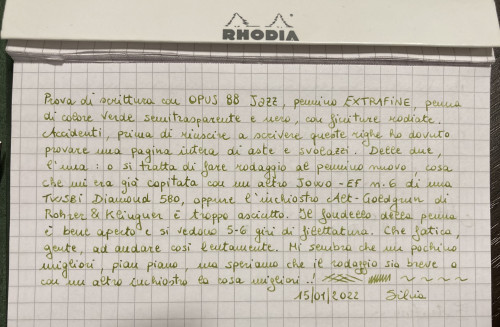 RHODIA
Prova di scrittura con OPUS 88 Jazz, pennino EXTRAFINE, penna
di colore verde semitrasparente e nero, con finiture rodiate.
Accidenti, prima di riuscire a scrivere queste righe ho dovuto
provare una pagina intera di aste e svolazzi. Delle due,
l'una: o si tratta di fare rodaggio al pennino nuovo, cosa
che mi era già capitata con un altro JOWO-EF n.6 di una
TWSBI Diamond 580, oppure l'inchiostro Alt-Goldgrun di
Rohrer & Klingner è troppo asciutto. Il fondello della penna
è bene aperto e si vedono 5-6 giri di filettatura. Che fatica,
gente, ad andare così lentamente. Mi sembra che un pochino
migliori, pian piano, ma speriamo che il rodaggio sia breve o
con un altro inchiostro la cosa migliori..!
15/01/2022 Silvia